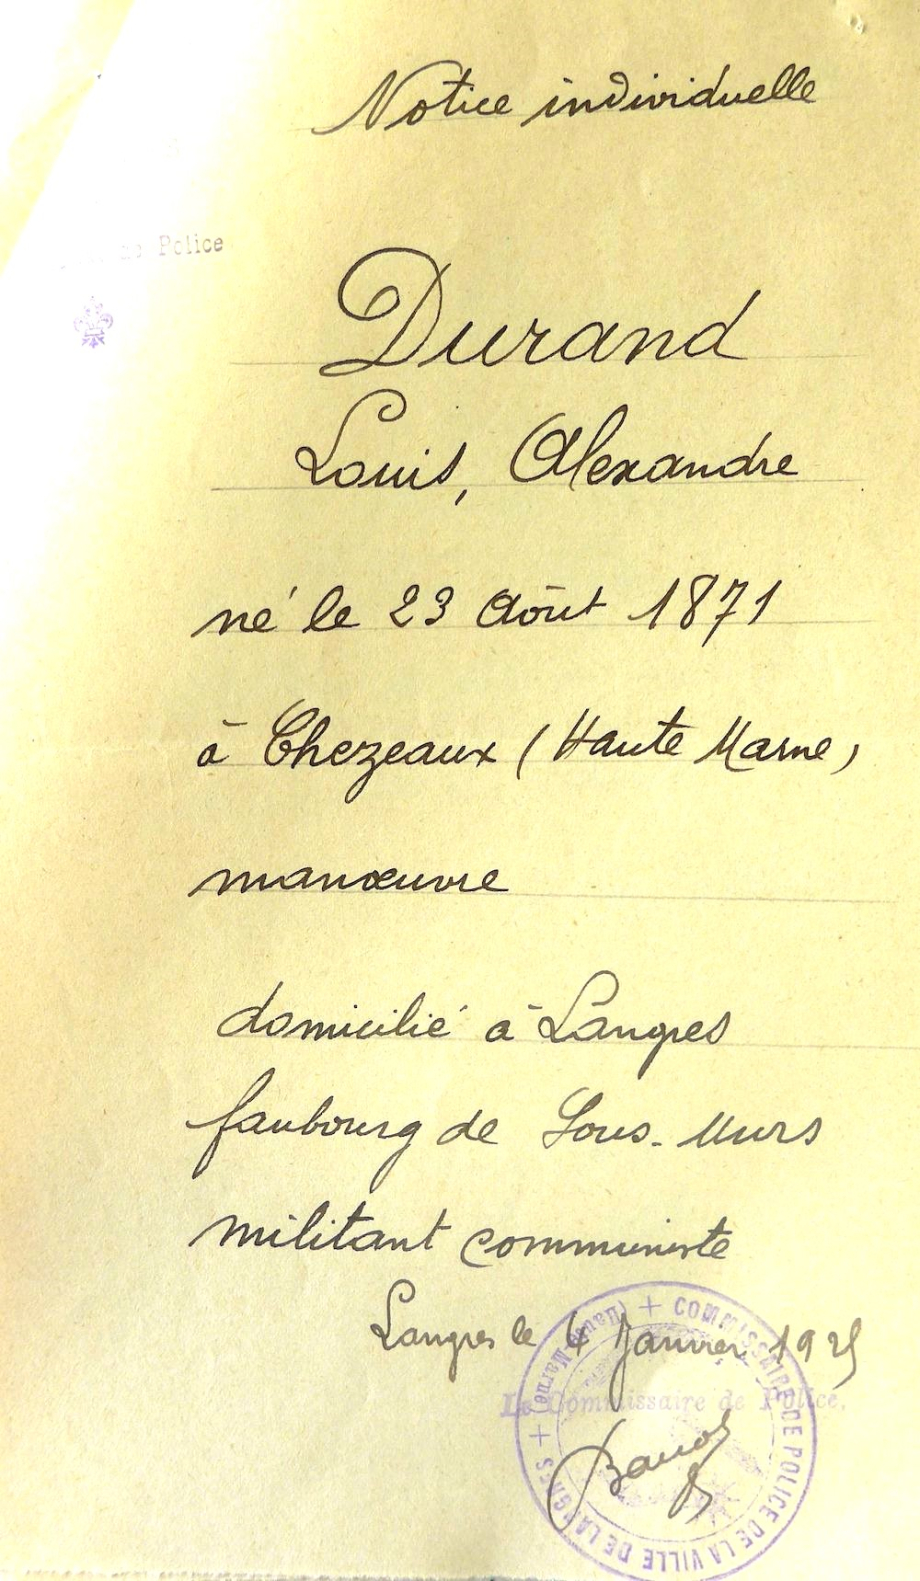 Notice individuelle
de Police
Durand
Louis, Alexandre
né le 23 Août 1871
à Chezeaux (Haute Marne)
manœuvre
domicilié à Langres
faubourg de Sous-Murs
militant communiste
Langres le 6 Janvier 1925
Le Commissaire de Police,
COMMISSAIRE DE POLICE DE LA VILLE DE LANGRES + (Haute Marne) +